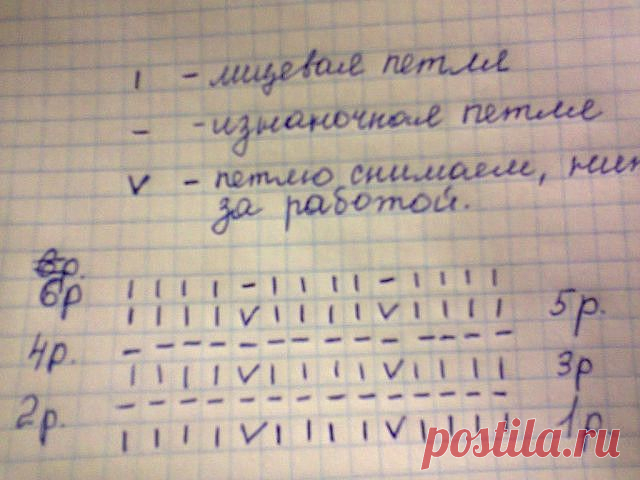 ı - лицевая петля
– - изнаночная петля
v - петлю снимаем,
за работой.
р.
6р ı ı ı ı – ı ı ı ı – ı ı ı ı
ı ı ı ı v ı ı ı ı v ı ı ı ı 5р.
4р. – – – – – – – – – – – – – –
ı ı ı ı v ı ı ı ı v ı ı ı ı 3р
2р. – – – – – – – – – – – – – –
ı ı ı ı v ı ı ı ı v ı ı ı ı 1р
postila.ru